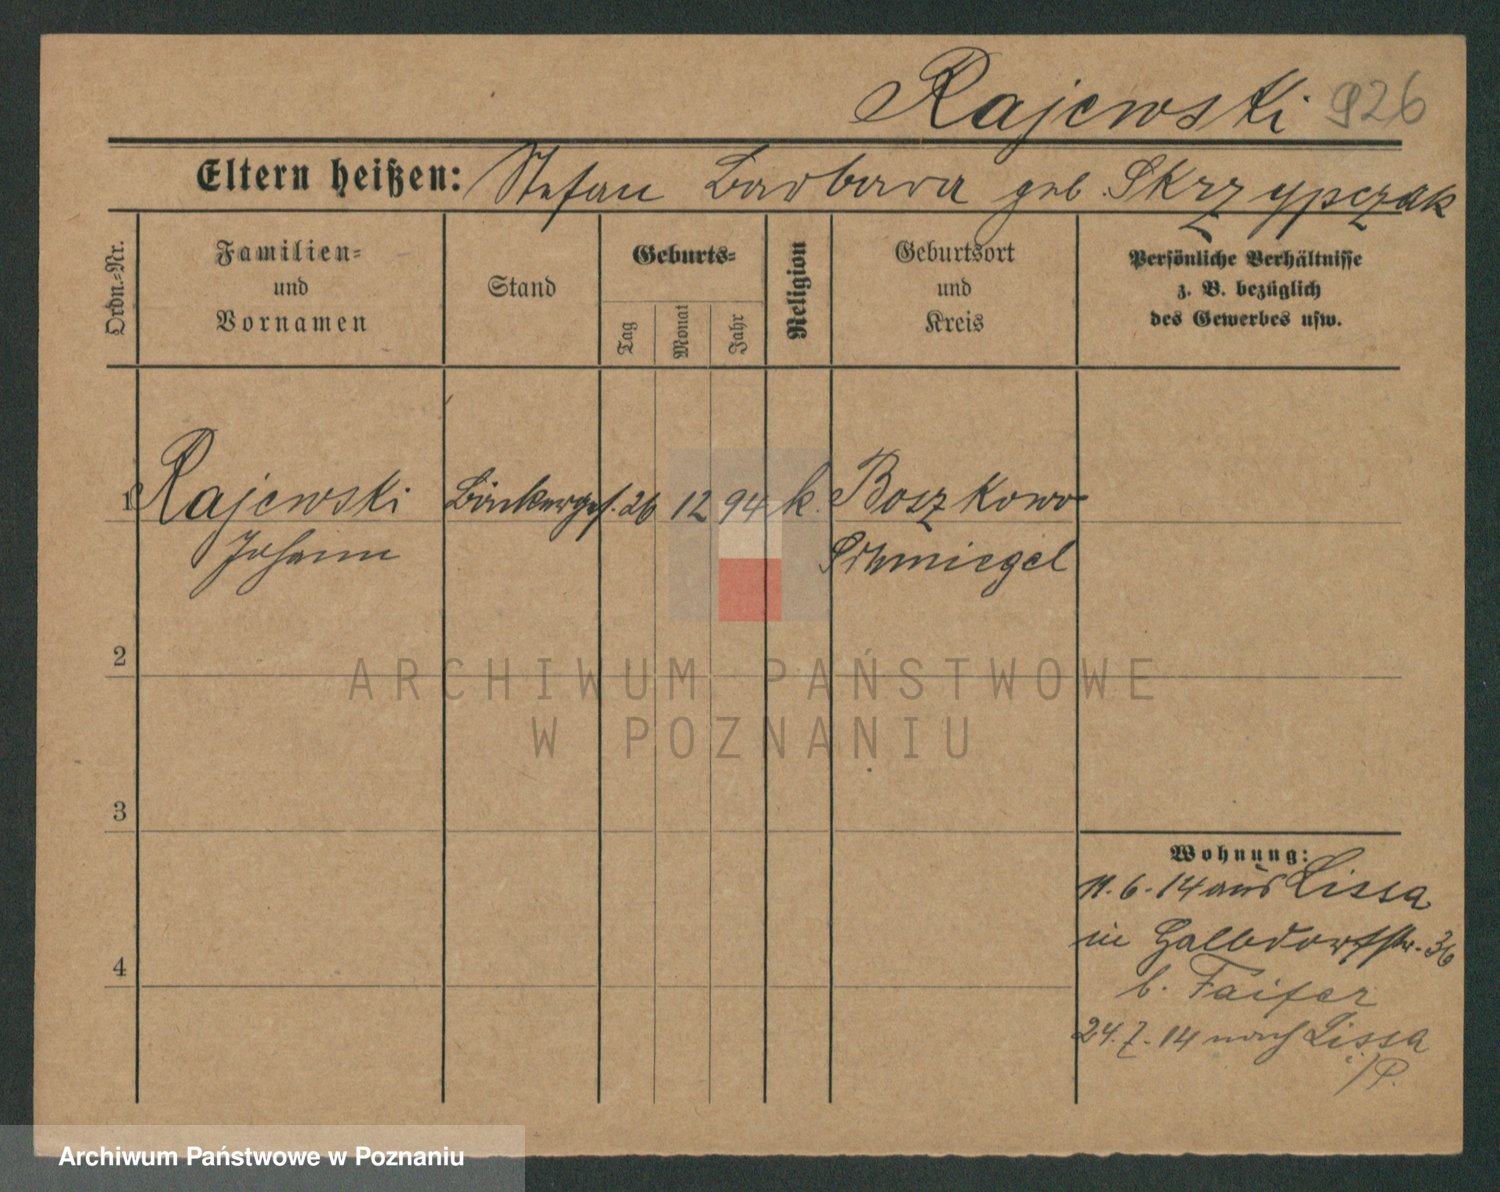 Rajewski 926
Eltern heißen: Stefan Barbara geb. Skrzypczak
Ordn.-Nr.
Familien-
und
Vornamen
Stand
Geburts-
Tag
Monat
Jahr
Religion
Geburtsort
und
Kreis
Persönliche Verhältnisse
z. B. bezüglich
des Gewerbes usw.
1 Rajewski Bäckerges. 26 12 94 k. Boszkowo
Johann Schmiegel
2
3
4
Wohnung:
11.6.14 aus Lissa
in Halbdorfstr. 36
b. Faifer
24.7.14 nach Lissa
i/P.
ARCHIWUM PAŃSTWOWE
W POZNANIU
Archiwum Państwowe w Poznaniu